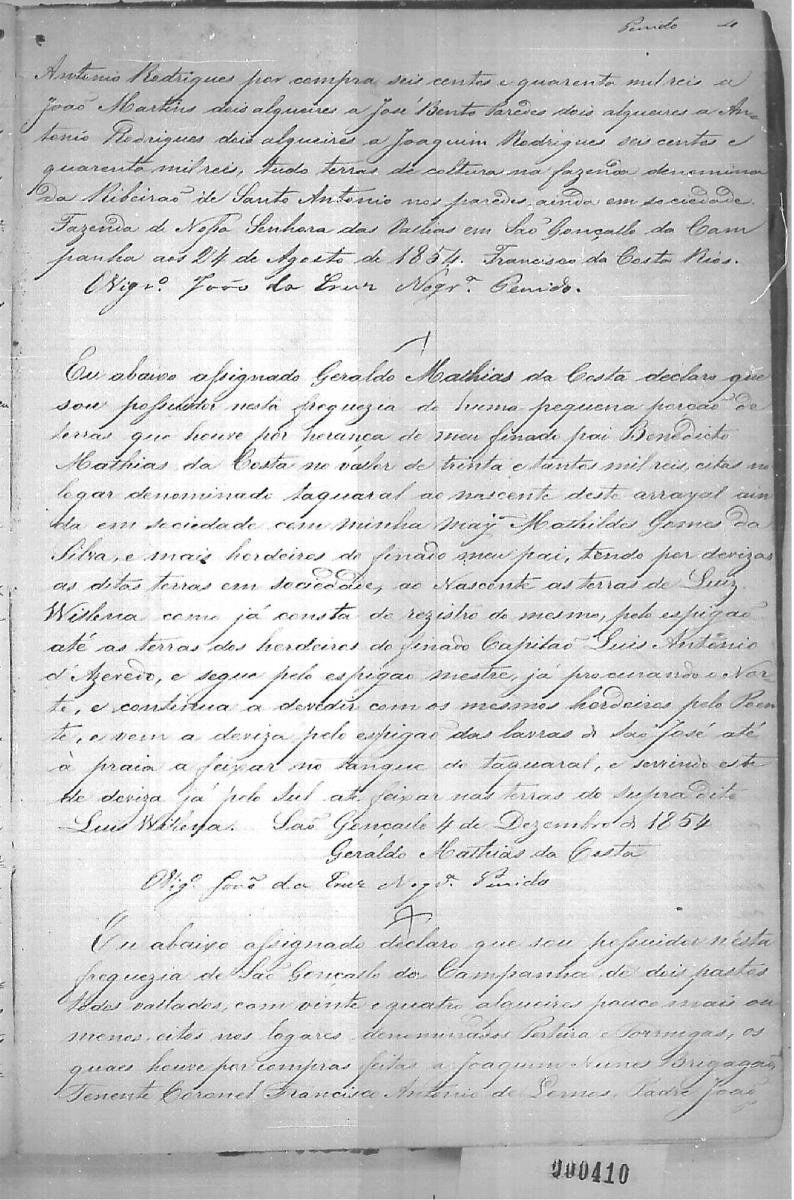 Penido 4
Antonio Rodrigues por compra seis centos e quarenta mil reis a
João Martins dois alqueires a José Bento Paredes dois alqueires a An-
tonio Rodrigues dois alqueires a Joaquim Rodrigues seis centos e
quarenta mil reis, tudo terras de coltura na fazenda denomina
da Ribeirão de Santo Antonio nos paredes, ainda em sociedade.
Fazenda de Nossa Senhora das Vallias em São Gonçallo da Cam
panha aos 24 de Agosto de 1854. Francisco da Costa Rios.
O Vigrº. João da Cruz Nogrª. Penido.
Eu abaixo assignado Geraldo Mathias da Costa declaro que
sou possuidor nesta freguezia de huma pequena porção de
terras que houve por herança de meu finado pai Benedicto
Mathias da Costa no valor de trinta e tantos mil reis, citas no
logar denominado taquaral ao nascente deste arrayal ain
da em sociedade com minha may Mathildes Gomes da
Silva, e mais herdeiros do finado meu pai, tendo por devizas
as ditas terras em sociedade, ao Nascente as terras de Luiz
como já consta do rezistro do mesmo, pelo espigão
até as terras dos herdeiros do finado Capitão Luis Antônio
d'Azevedo, e segue pelo espigão mestre, já procurando o Nor-
te, e continua a devedir com os mesmos herdeiros pelo Poen
te, e vem a deviza pelo espigão das lavras de São José até
á praia a feixar no tanque do taquaral, e serrindo este
de deviza já pelo Sul até feixar nas terras do supradito
Luis São Goncallo 4 de Dezembro de 1854
Geraldo Mathias da Costa
O Vigº. João da Cruz Nogrª. Penido
Eu abaixo assignado declaro que sou possuidor nésta
freguezia de São Gonçallo da Campanha de dois pastos
todos vallados, com vinte e quatro alqueires pouco mais ou
menos, citos nos logares denominados Porteira e Formigas, os
quaes houve por compras feitas a Joaquim Nunes Brigagão,
Tenente Coronel Francisco Antonio de Lemos, Padre João
000410